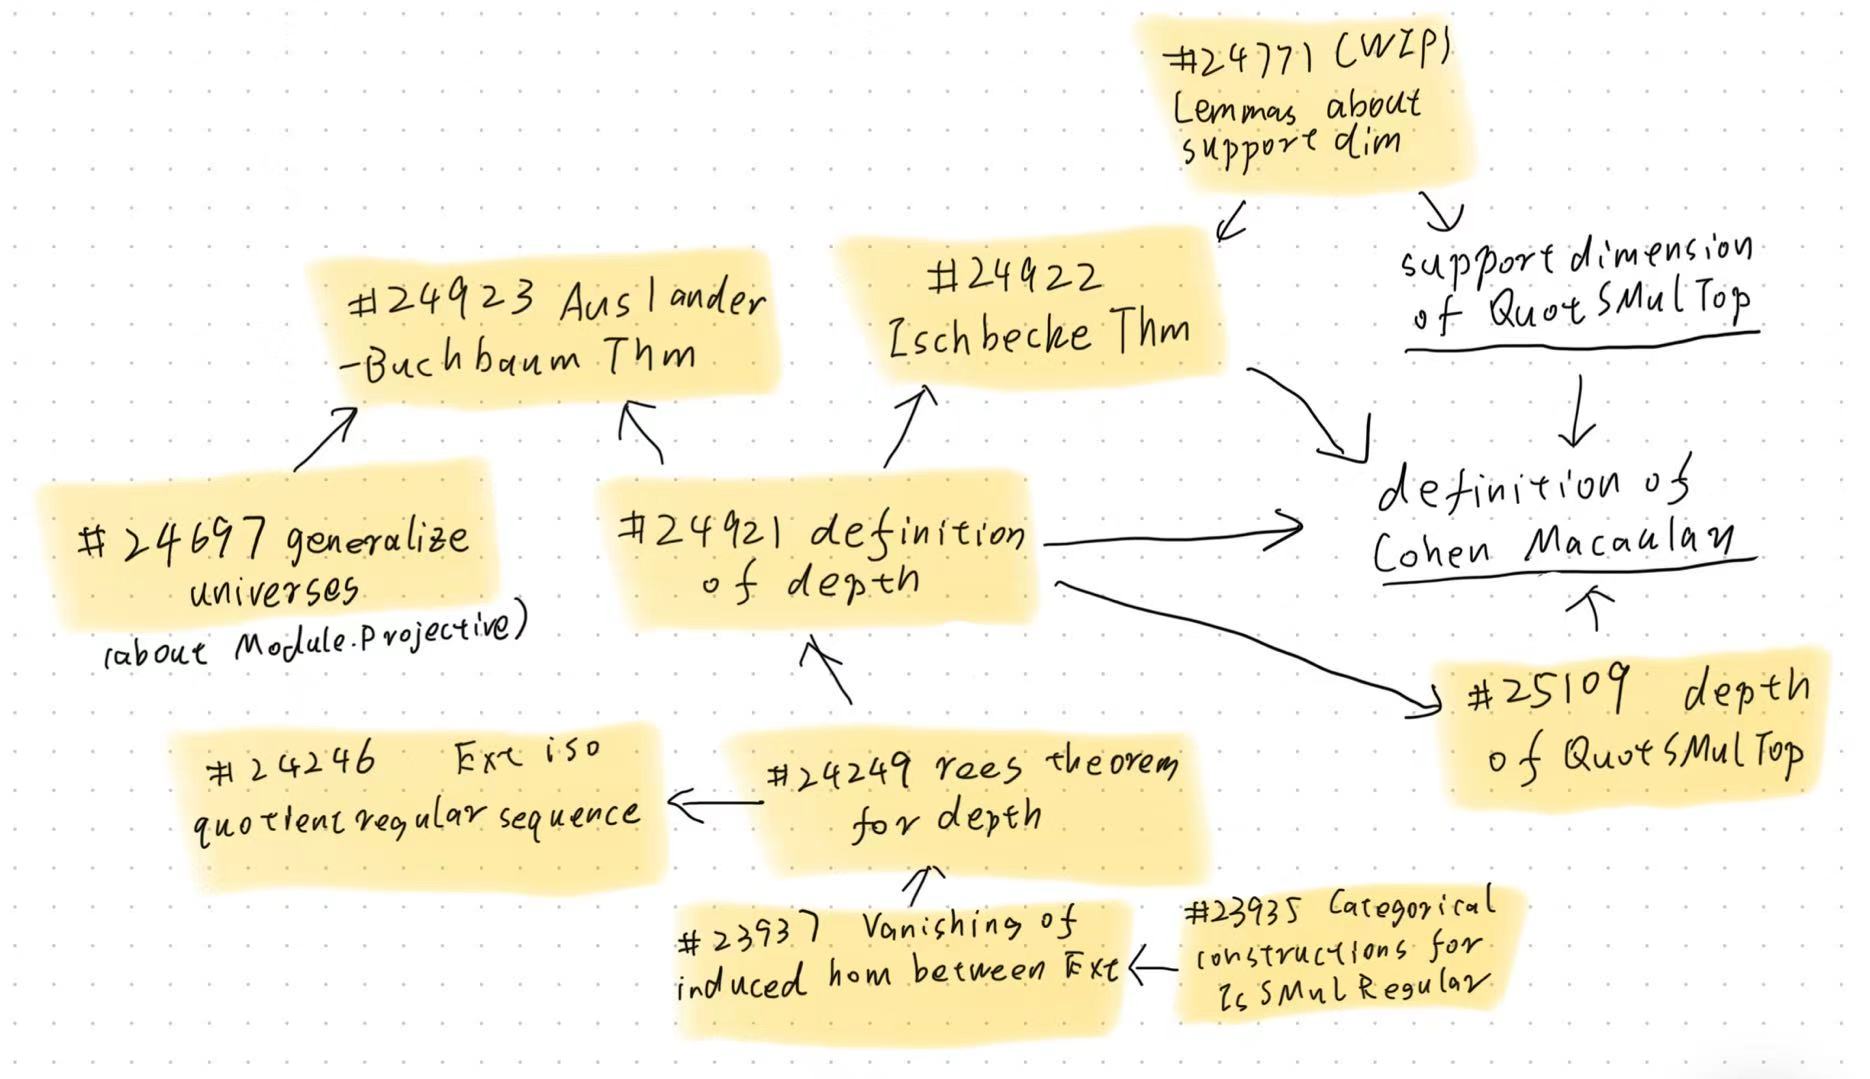 #24771 (WIP)
Lemmas about
support dim
support dimension
of QuotSMulTop
#24922
Ischbecke Thm
#24923 Auslander
-Buchbaum Thm
definition of
Cohen Macaulay
#24697 generalize
universes
(about Module.Projective)
#24921 definition
of depth
#25109 depth
of QuotSMulTop
#24246 Ext iso
quotient regular sequence
#24249 rees theorem
for depth
#23937 Vanishing of
induced hom between Ext
#23935 Categorical
constructions for
IsSMulRegular